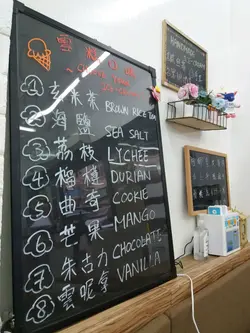 雪糕口味
① 玄米茶 BROWN RICE TEA
② 海鹽 SEA SALT
③ 荔枝 LYCHEE
④ 榴槤 DURIAN
⑤ 曲奇 COOKIE
⑥ 芒果 MANGO
⑦ 朱古力 CHOCOLATE
⑧ 雲呢拿 VANILLA
HOMEMADE